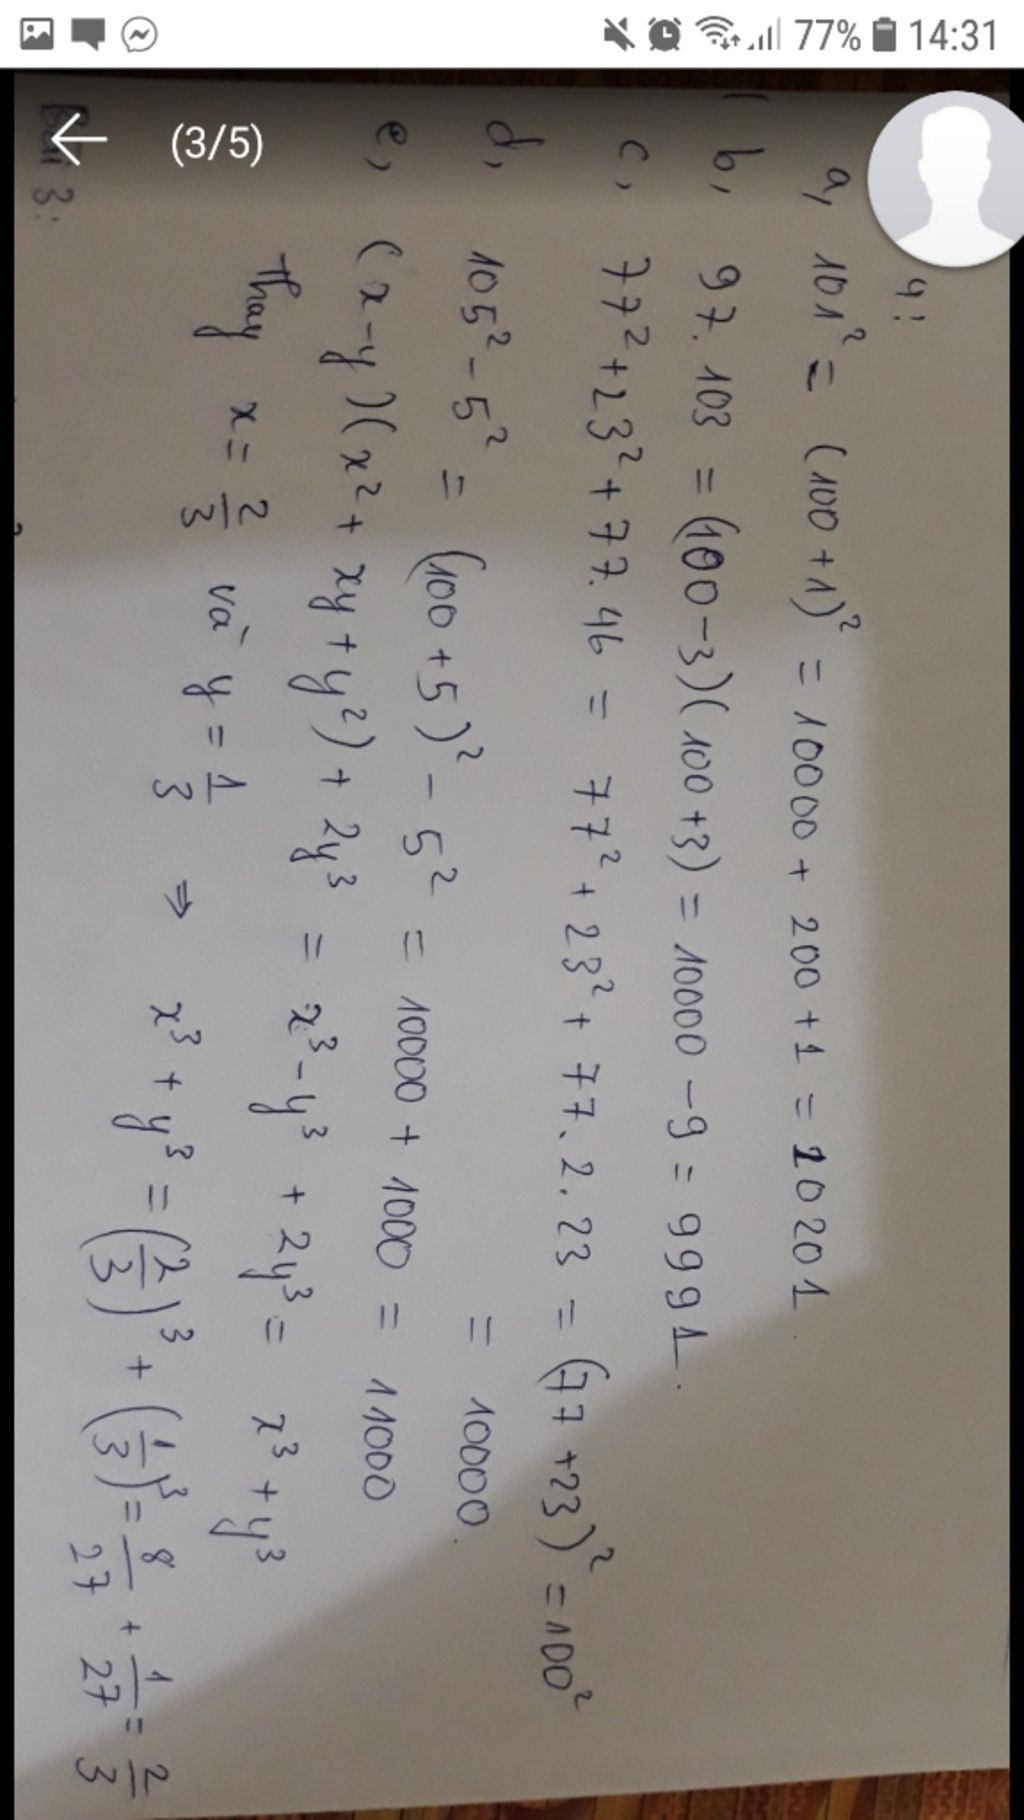 77% 14:31
(3/5)
4:
a, 101² = (100 + 1)² = 10000 + 200 + 1 = 10201.
b, 97. 103 = (100 - 3)(100 + 3) = 10000 - 9 = 9991.
c, 77² + 23² + 77. 46 = 77² + 23² + 77. 2. 23 = (77 + 23)² = 100²
= 10000.
d, 105² - 5² = (100 + 5)² - 5² = 10000 + 1000 = 11000
e, (x - y)(x² + xy + y²) + 2y³ = x³ - y³ + 2y³ = x³ + y³
Thay x = 2/3 và y = 1/3 ⇒ x³ + y³ = (2/3)³ + (1/3)³ = 8/27 + 1/27 = 2/3
Bài 3: